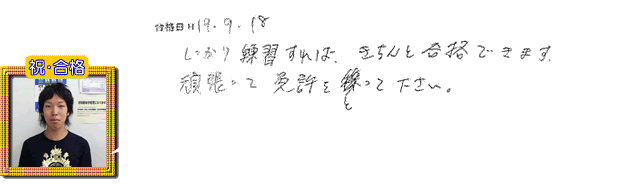 合格日 H19.9.18
しっかり練習すれば、きちんと合格できます。
頑張って免許をとって下さい。
祝・合格